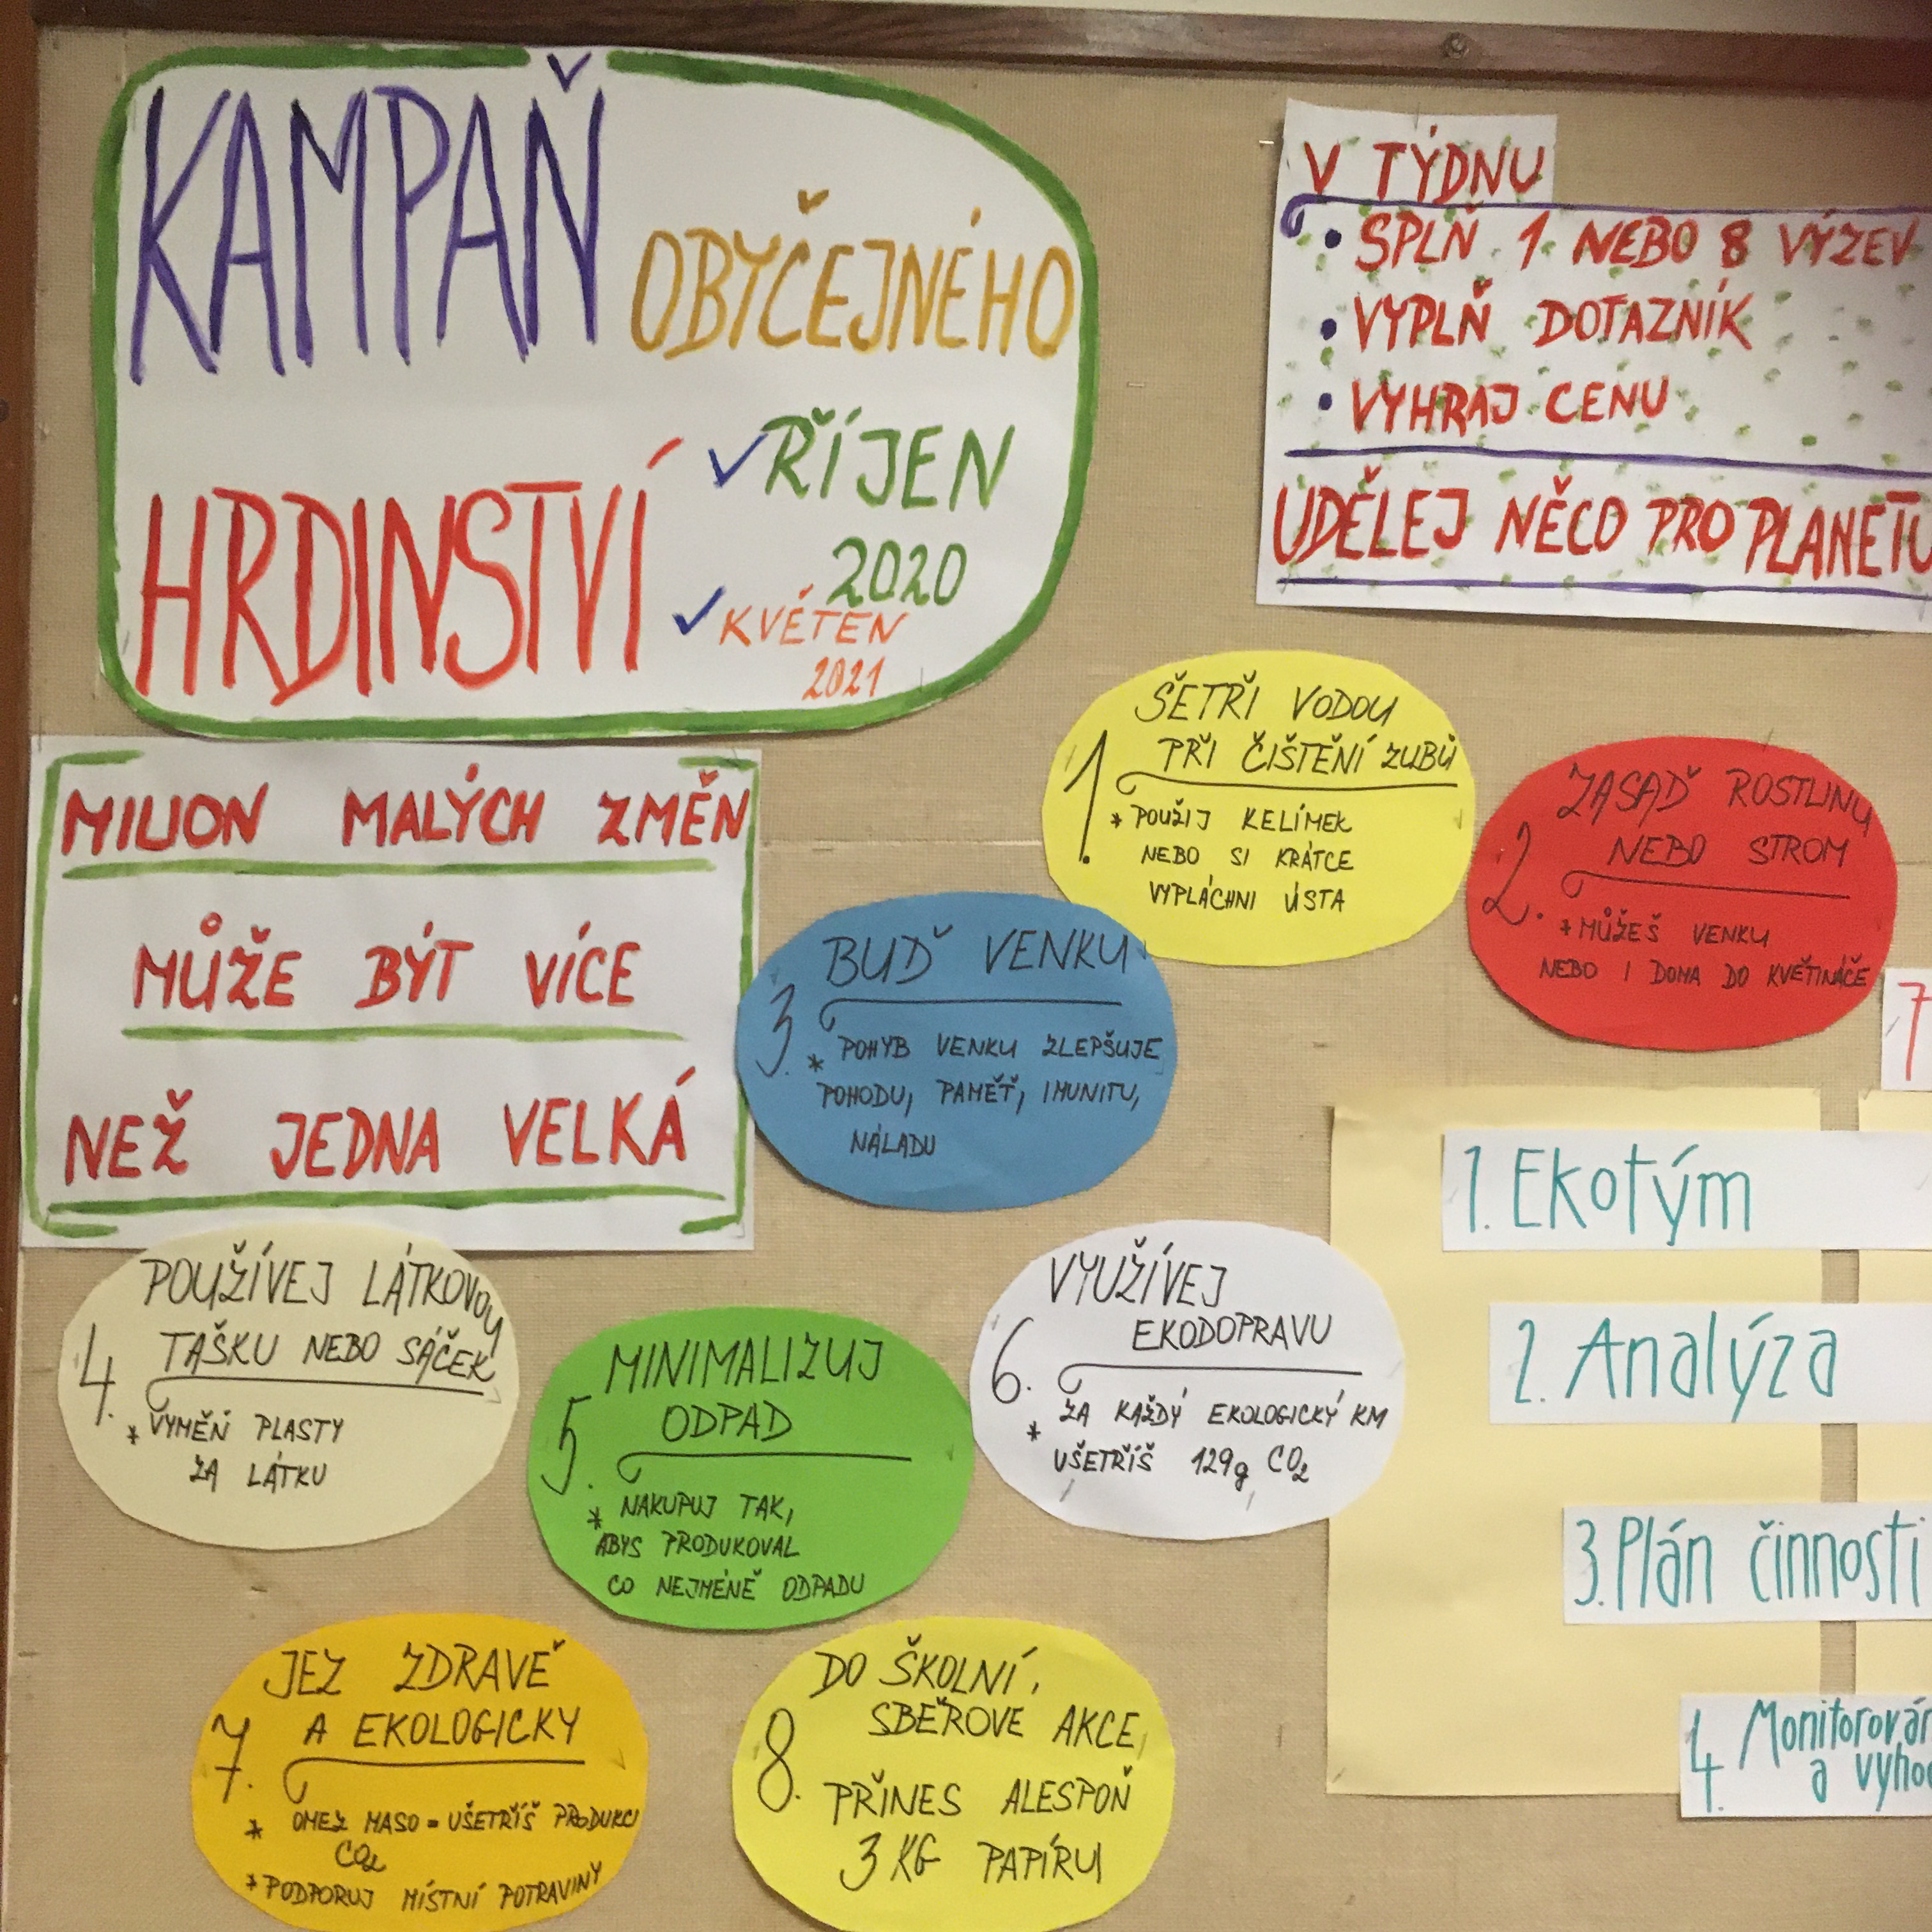 KAMPAŇ
OBYČEJNÉHO
HRDINSTVÍ
✓ŘÍJEN
2020
✓KVĚTEN
2021
V TÝDNU
• SPLŇ 1 NEBO 8 VÝZEV
• VYPLŇ DOTAZNÍK
• VYHRAJ CENU
UDĚLEJ NĚCO PRO PLANETU
MILION MALÝCH ZMĚN
MŮŽE BÝT VÍCE
NEŽ JEDNA VELKÁ
1.
ŠETŘI VODOU
PŘI ČIŠTĚNÍ ZUBŮ
* POUŽIJ KELÍMEK
NEBO SI KRÁTCE
VYPLÁCHNI ÚSTA
2.
ZASAĎ ROSTLINU
NEBO STROM
* MŮŽEŠ VENKU
NEBO I DOMA DO KVĚTINÁČE
3.
BUĎ VENKU
* POHYB VENKU ZLEPŠUJE
POHODU, PAMĚŤ, IMUNITU,
NÁLADU
4.
POUŽÍVEJ LÁTKOVOU
TAŠKU NEBO SÁČEK
* VYMĚŇ PLASTY
ZA LÁTKU
5.
MINIMALIZUJ
ODPAD
* NAKUPUJ TAK,
ABYS PRODUKOVAL
CO NEJMÉNĚ ODPADU
6.
VYUŽÍVEJ
EKODOPRAVU
* ZA KAŽDÝ EKOLOGICKÝ KM
UŠETŘÍŠ 129g CO2
7.
JEZ ZDRAVĚ
A EKOLOGICKY
* OMEZ MASO = UŠETŘÍŠ PRODUKCI
CO2
* PODPORUJ MÍSTNÍ POTRAVINY
8.
DO ŠKOLNÍ
SBĚROVÉ AKCE
PŘINES ALESPOŇ
3 KG PAPÍRU
7
1. Ekotým
2. Analýza
3. Plán činnosti
4. Monitorován
a vyho